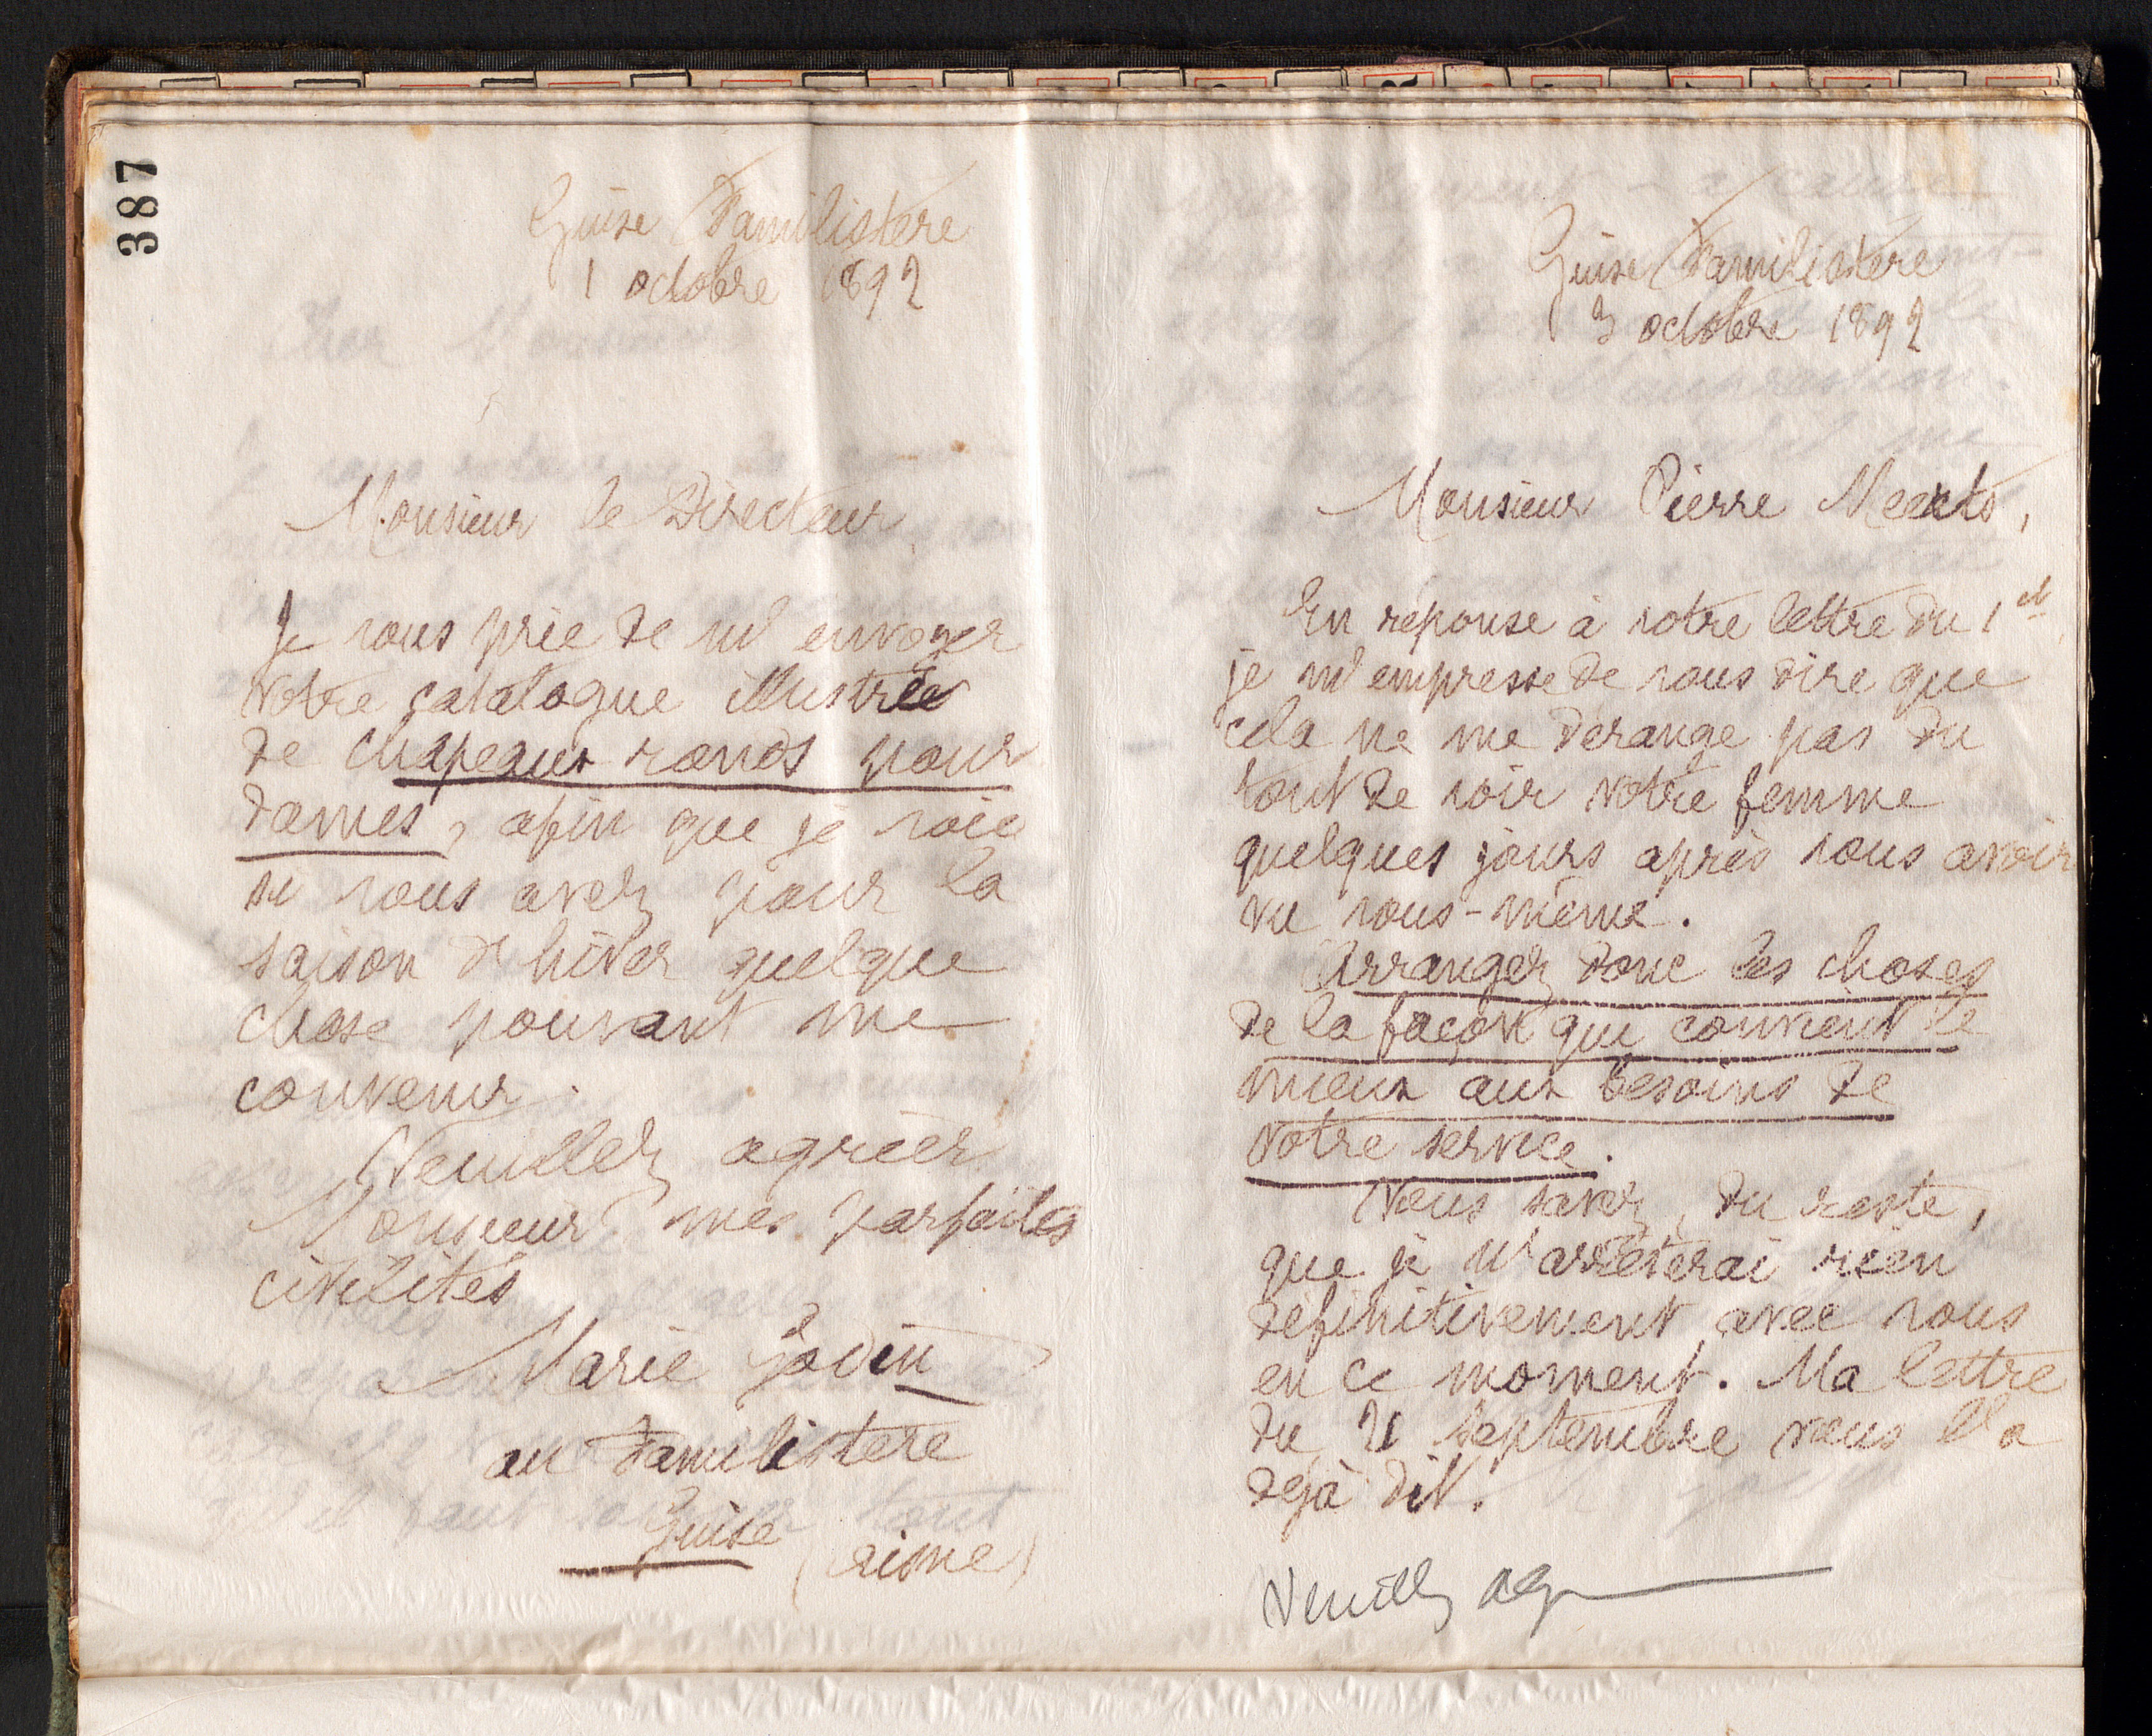 387
Guise Familistère
1 octobre 1892
Monsieur le Directeur,
Je vous prie de m'envoyer
votre catalogue illustré
de chapeaux ronds pour
dames, afin que je voie
si vous avez pour la
saison d'hiver quelque
chose pouvant me
convenir.
Veuillez agréer
Monsieur mes parfaites
civilités
Marie Godin
au Familistère
Guise (Aisne)
Guise Familistère
3 octobre 1892
Monsieur Pierre
En réponse à votre lettre du 1er
je m'empresse de vous dire que
cela ne me dérange pas du
tout de voir votre femme
quelques jours après vous avoir
vu vous-même.
Arrangez donc les choses
de la façon qui convient le
mieux aux besoins de
votre service.
Vous savez, du reste,
que je n'arrêterai rien
définitivement avec vous
en ce moment. Ma lettre
du 21 septembre vous l'a
déjà dit.
Veuillez ag